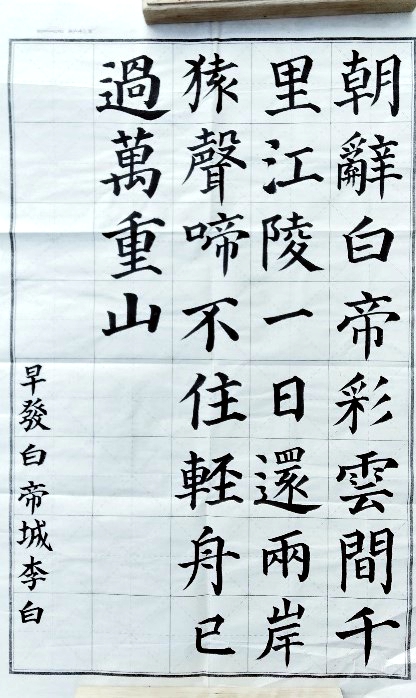 朝辭白帝彩雲間千
里江陵一日還兩岸
猿聲啼不住輕舟已
過萬重山
早發白帝城李白